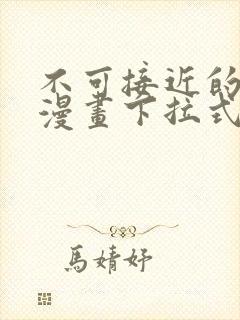 不可接近的
漫畫下拉式
馬婧妤